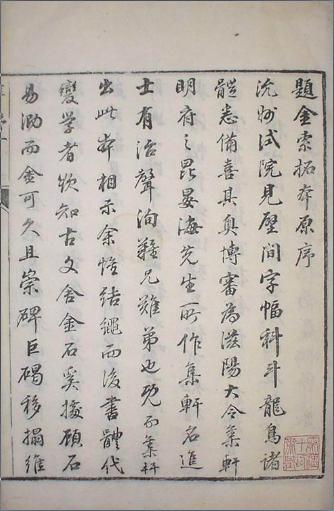 題金索拓本原序
沇州試院見壁間字幅科斗龍鳥諸
體悉備喜其奥博審為滋陽大令集軒
明府之昆晏海先生所作集軒名進
士有治聲洵難兄難弟也既而集軒
出此本相示余惟結繩而後書體代
變學者欲知古文舍金石奚據顧石
易泐而金可久且崇碑巨碣移搨維